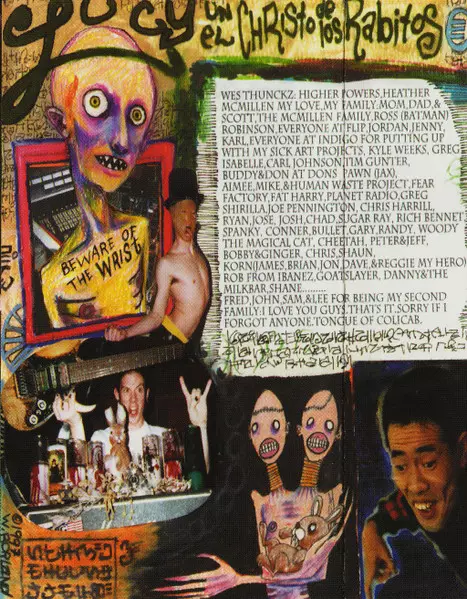 UN CHRISTO de
EL los Rabitos
WES THUNCKZ: HIGHER POWERS,HEATHER
MCMILLEN MY LOVE,MY FAMILY:MOM,DAD,&
SCOTT,THE MCMILLEN FAMILY,ROSS (BATMAN)
ROBINSON,EVERYONE AT FLIP,JORDAN,JENNY,
KARL,EVERYONE AT INDIGO FOR PUTTING UP
WITH MY SICK ART PROJECTS, KYLE WEEKS, GREG
ISABELLE,CARL JOHNSON,TIM GUNTER,
BUDDY&DON AT DONS PAWN (JAX),
AIMEE,MIKE,&HUMAN WASTE PROJECT,FEAR
FACTORY,FAT HARRY,PLANET RADIO,GREG
GHIRILLA,JOE PENNINGTON, CHRIS HARRILL,
RYAN,JOSE, JOSH,CHAD,SUGAR RAY, RICH BENNETT
SPANKY, CONNER,BULLET,GARY,RANDY, WOODY
THE MAGICAL CAT, CHEETAH, PETER&JEFF,
BOBBY&GINGER, CHRIS,SHAUN,
KORN(JAMES,BRIAN,JON,DAVE,&REGGIE MY HERO)
ROB FROM IBANEZ,GOATSLAYER, DANNY&THE
MILKBAR,SHANE.........
FRED,JOHN,SAM,&LEE FOR BEING MY SECOND
FAMILY:I LOVE YOU GUYS.THATS IT.SORRY IF I
FORGOT ANYONE.TONGUE OF COLICAB.
BEWARE OF
THE WRIST